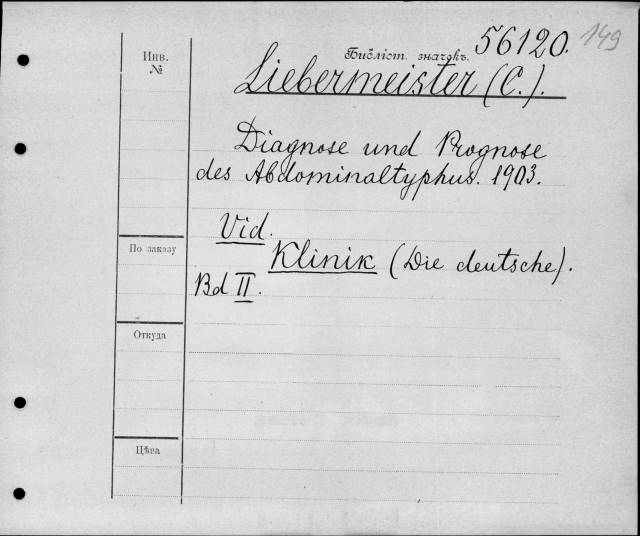 149
56120.
Инв.
№
Библіот. значокъ.
Liebermeister (C.).
Diagnose und Prognose
des Abdominaltyphus. 1903.
Vid.
Klinik (Die deutsche).
Bd II.
По заказу
Откуда
Цѣна